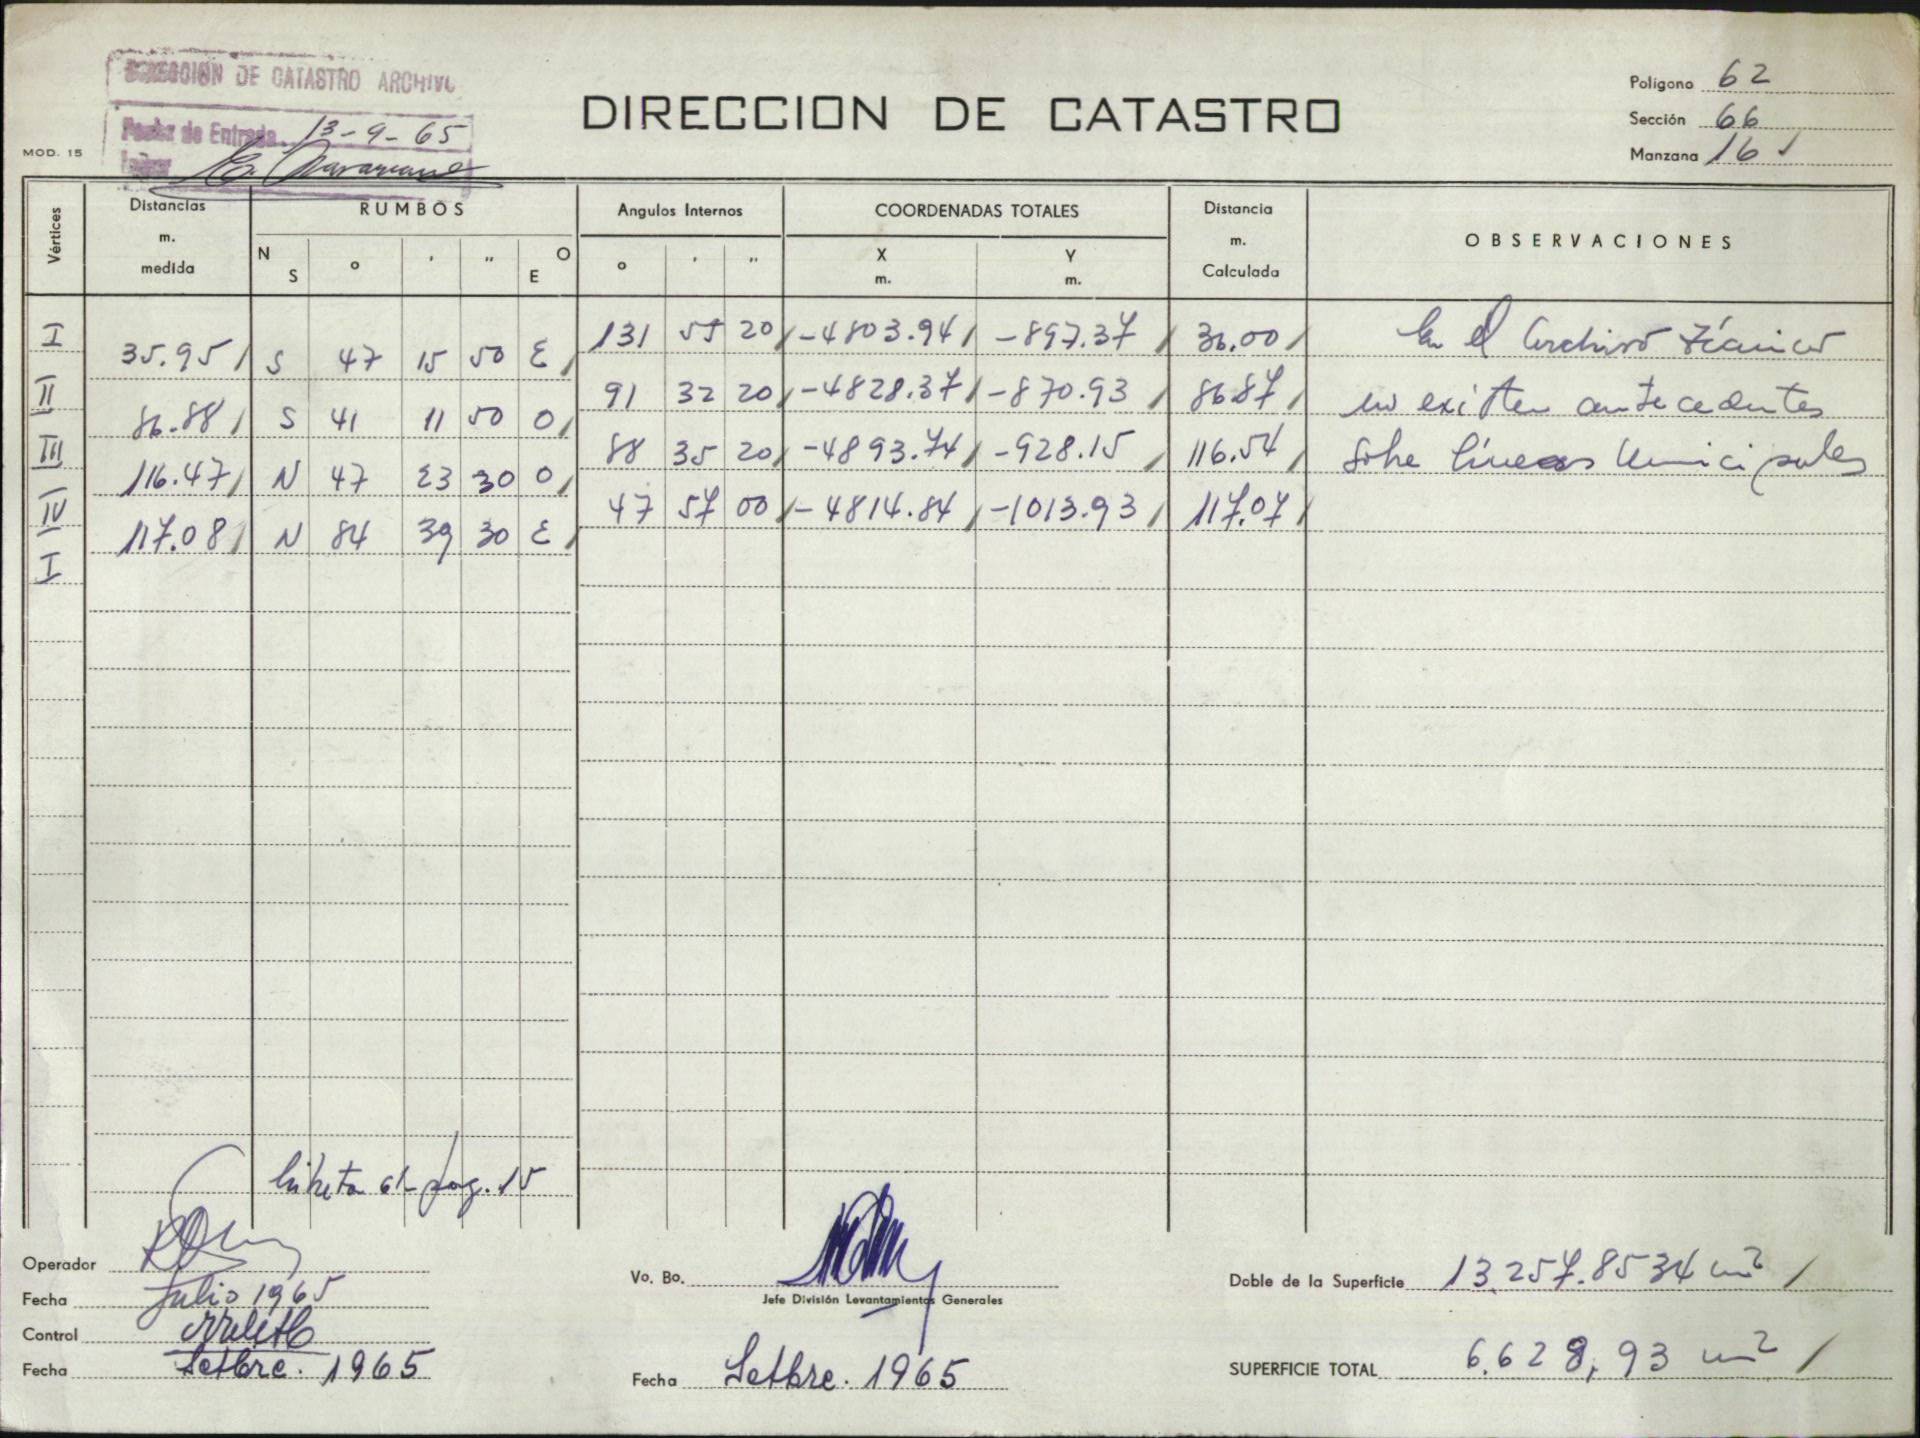 DIRECCION DE CATASTRO ARCHIVO
Fecha de Entrada 13-9-65
MOD. 15
DIRECCION DE CATASTRO
Polígono 62
Sección 66
Manzana 161
Vértices
Distancias m. medida
RUMBOS
N S ° ' " O E
Angulos Internos
° ' "
COORDENADAS TOTALES
X m. Y m.
Distancia m. Calculada
OBSERVACIONES
I 131 55 20 -4803.94 -897.37 36.00 En el Archivo Técnico
35.95 S 47 15 50 E
II 91 32 20 -4828.37 -870.93 86.87 no existen antecedentes
86.88 S 41 11 50 O
III 88 35 20 -4893.74 -928.15 116.54 sobre líneas Municipales
116.47 N 47 23 30 O
IV 47 57 00 -4814.84 -1013.93 117.07
117.08 N 84 39 30 E
I
libreta pag. 15
Operador
Fecha Julio 1965
Control
Fecha Setbre. 1965
Vo. Bo.
Jefe División Levantamientos Generales
Fecha Setbre. 1965
Doble de la Superficie 13.257.8534 m²
SUPERFICIE TOTAL 6.628,93 m²